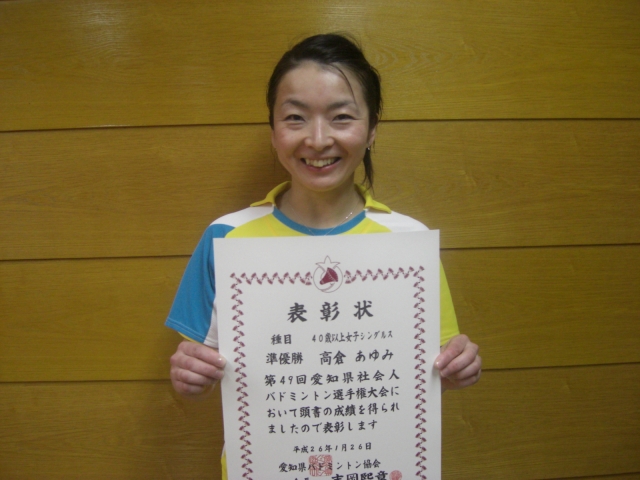 表彰状
種目 40歳以上女子シングルス
準優勝 高倉 あゆみ
第49回愛知県社会人
バドミントン選手権大会に
おいて頭書の成績を得られ
ましたので表彰します
平成26年1月26日
愛知県バドミントン協会